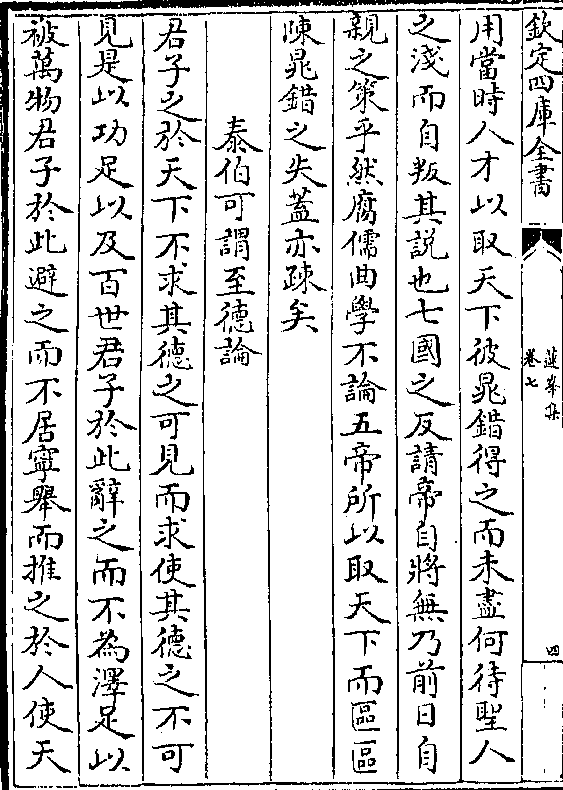 欽定四庫全書
蓮峯集
卷七
四
用當時人才以取天下彼晁錯得之而未盡何待聖人
之淺而自叛其説也七國之反請帝自將無乃前日自
親之策乎然腐儒曲學不論五帝所以取天下而區區
陳晁錯之失蓋亦疎矣
泰伯可謂至德論
君子之於天下不求其德之可見而求使其德之不可
見是以功足以及百世君子於此辭之而不為澤足以
被萬物君子於此避之而不居寧舉而推之於人使天